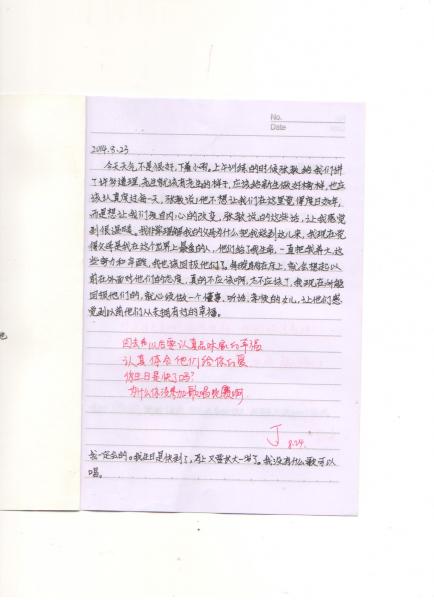 No.
Date
2014.8.23
今天天气不是很好,下着小雨。上午训练的时候张教给我们讲
了许多道理,老生就该有老生的样子,应该给新生做好榜样,也应
该认真度过每一天,张教说,他不想让我们在这里觉得度日如年,
而是想让我们发自内心的改变,张教说的这些话,让我感觉
到很温暖。我非常理解我的父母为什么把我送到这儿来,我现在觉
得父母是我在这个世界上最爱的人,他们给了我生命,一直把我养大,这
些努力和辛酸,我也该回报他们了。每晚躺在床上,就会想起以
前在外面对他们的态度,真的不应该啊,太不应该了,我现在所能
回报他们的,就必须做一个懂事、听话、乖快的女儿,让他们感
觉到以前他们从未拥有过的幸福。
回去以后要认真品味家的幸福
认真体会他们给你的爱
你生日是快了吗?
为什么你没参加歌唱比赛啊
J 8.24.
我一定会的。我生日是快到了,马上又要长大一岁了。我没有什么歌可以
唱。